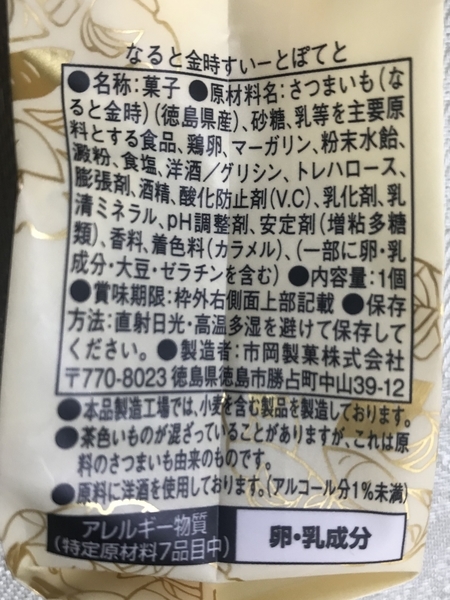 なると金時すいーとぽてと
●名称:菓子 ●原材料名:さつまいも(な
ると金時)(徳島県産)、砂糖、乳等を主要原
料とする食品、鶏卵、マーガリン、粉末水飴、
澱粉、食塩、洋酒/グリシン、トレハロース、
膨張剤、酒精、酸化防止剤(V.C)、乳化剤、乳
清ミネラル、pH調整剤、安定剤(増粘多糖
類)、香料、着色料(カラメル)、(一部に卵・乳
成分・大豆・ゼラチンを含む) ●内容量:1個
●賞味期限:枠外右側面上部記載 ●保存
方法:直射日光・高温多湿を避けて保存して
ください。 ●製造者:市岡製菓株式会社
〒770-8023 徳島県徳島市勝占町中山39-12
●本品製造工場では、小麦を含む製品を製造しております。
●茶色いものが混ざっていることがありますが、これは原
料のさつまいも由来のものです。
●原料に洋酒を使用しております。(アルコール分1%未満)
アレルギー物質
(特定原材料7品目中)
卵・乳成分